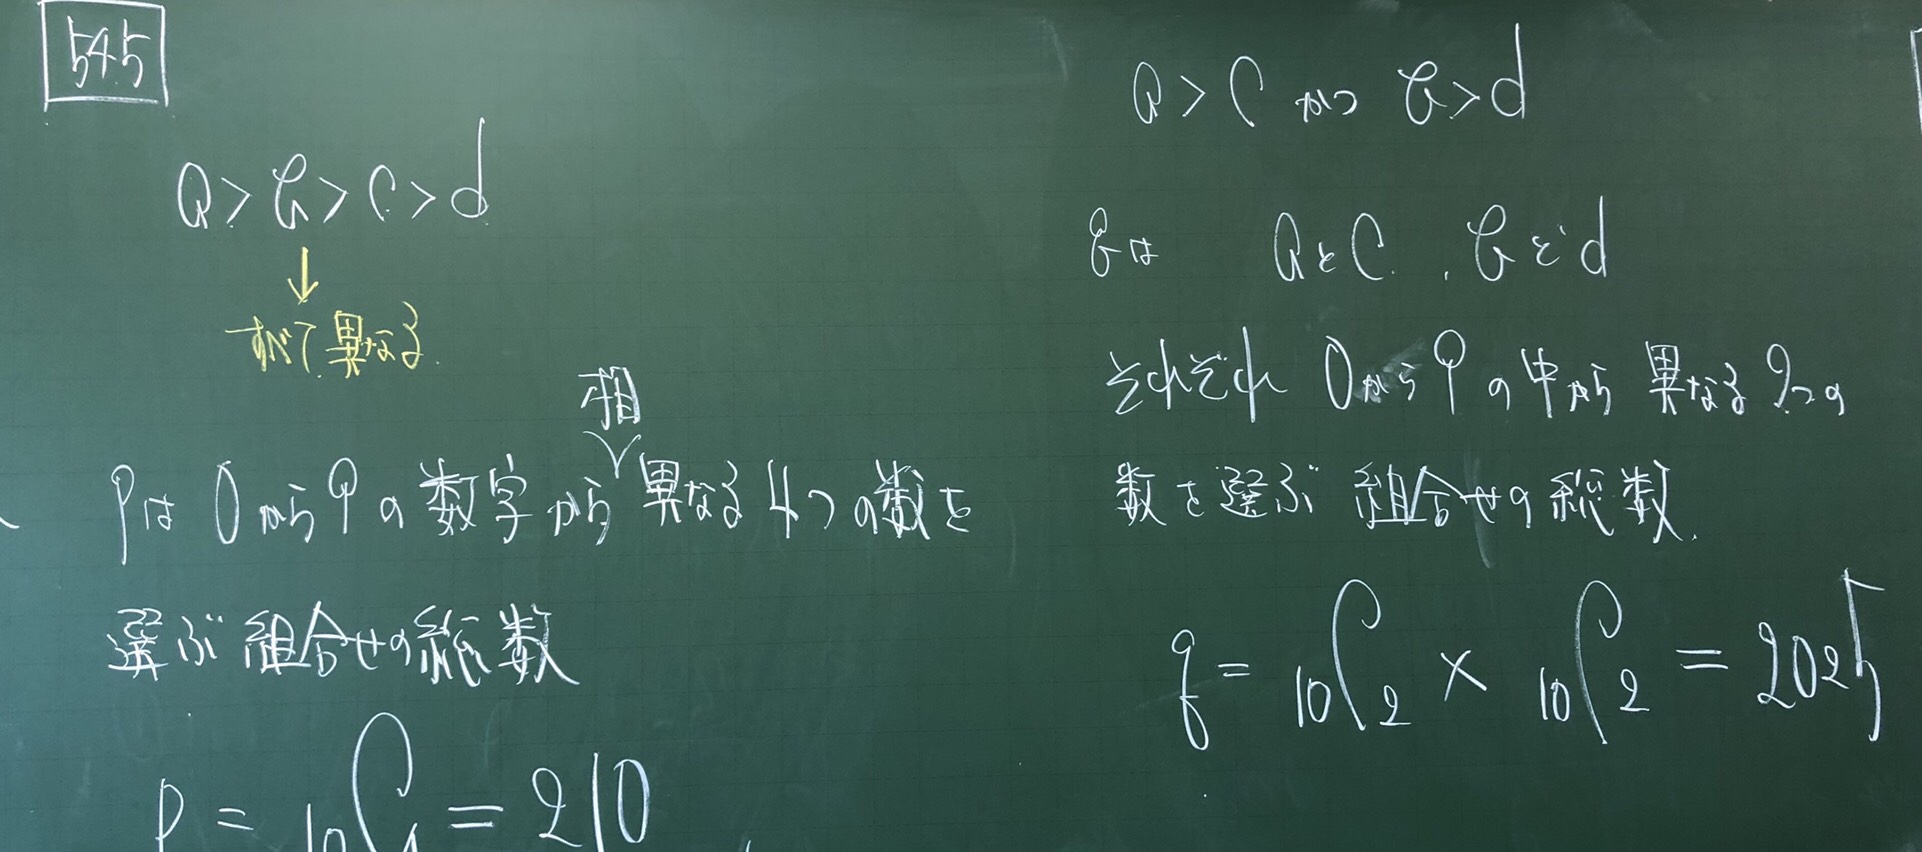 545
a > b > c > d
↓
すべて異なる
相
pは 0から9の数字から異なる4つの数を
選ぶ組合せの総数
p = ₁₀C₄ = 210
a > c かつ b > d
qは aとc、bとd
それぞれ 0から9の中から異なる2つの
数を選ぶ組合せの総数.
q = ₁₀C₂ × ₁₀C₂ = 2025